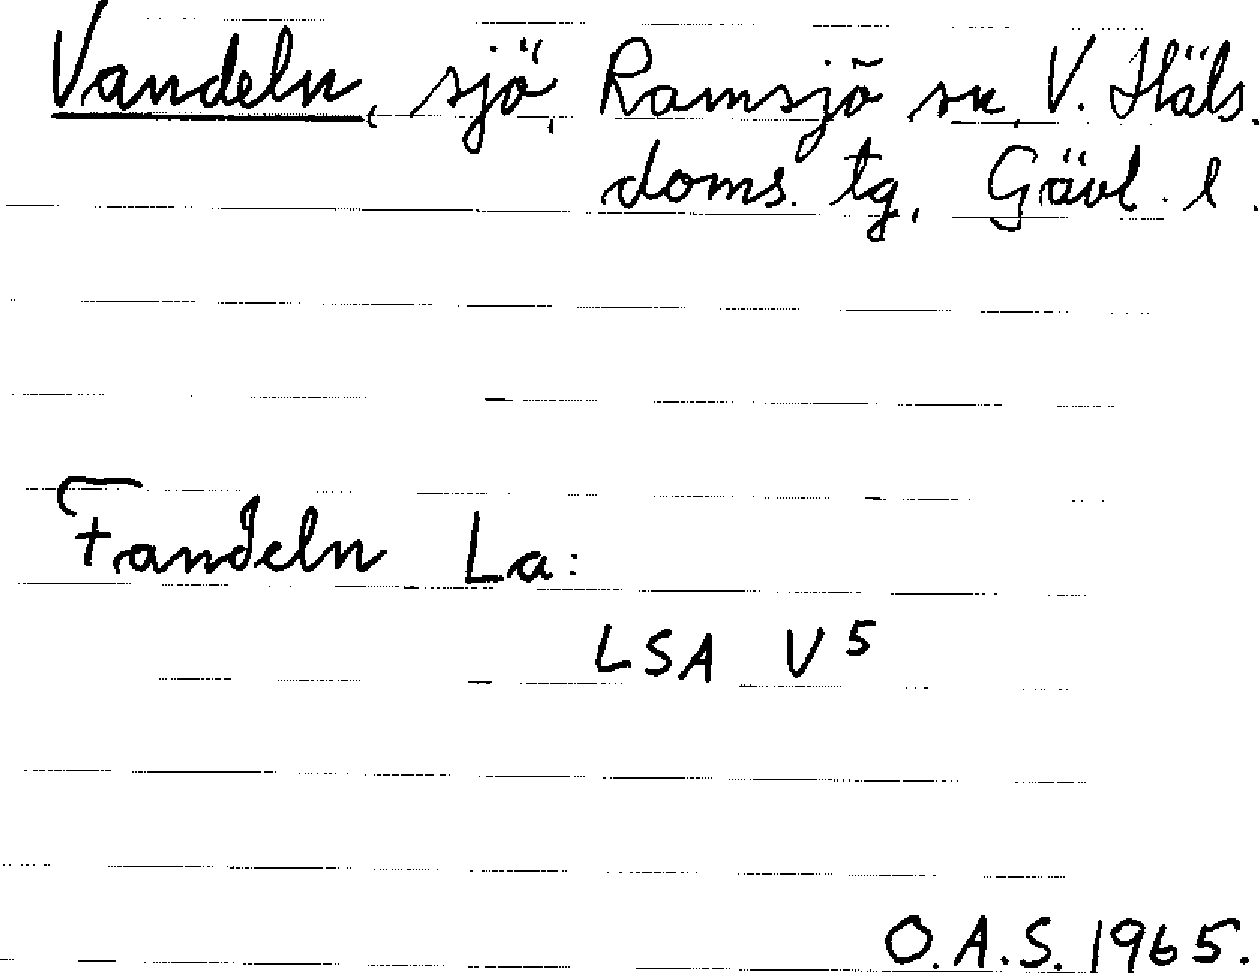 Vandeln, sjö, Ramsjö sn, V. Häls.
doms. tg, Gävl. l.
Fandeln La:
LSA V5
O.A.S. 1965.